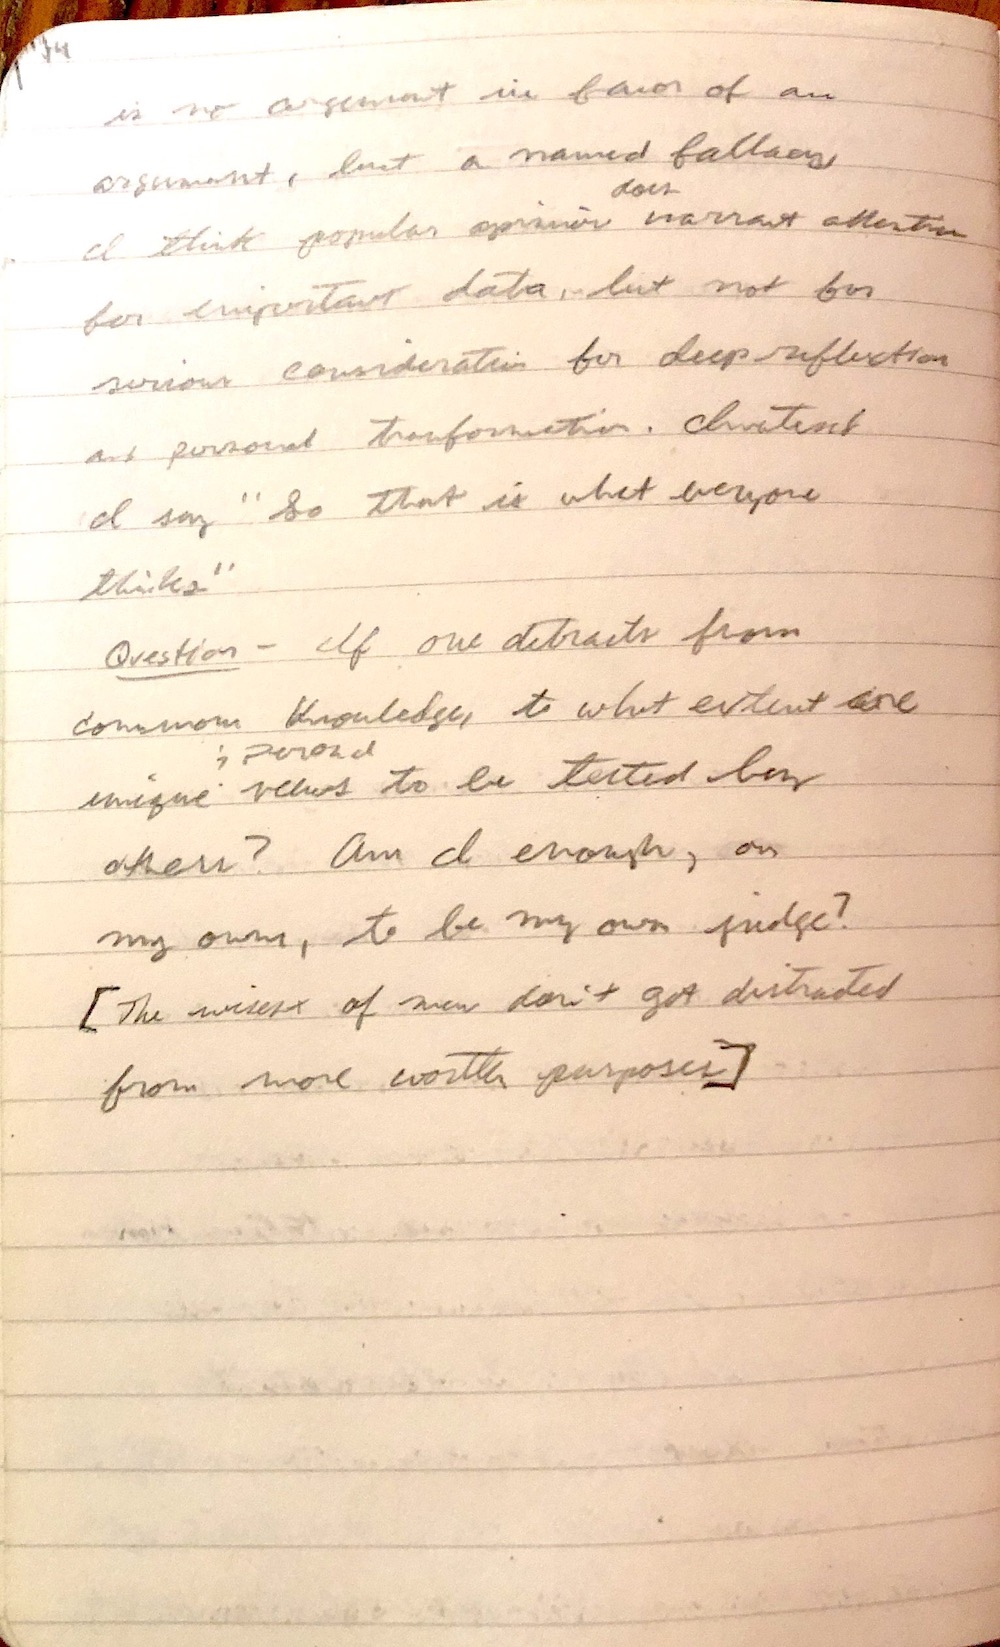 is no argument in favor of an
argument, but a named fallacy
I think popular opinion does warrant attention
for important data, but not for
serious consideration for deep reflection
and personal tranformation. Instead
I say "So that is what everyone
thinks"
Question - If one detracts from
common knowledge, to what extent are
unique, personal views to be tested by
others? Am I enough, on
my own, to be my own judge?
[The wisest of men don't get distracted
from more worth purposes]